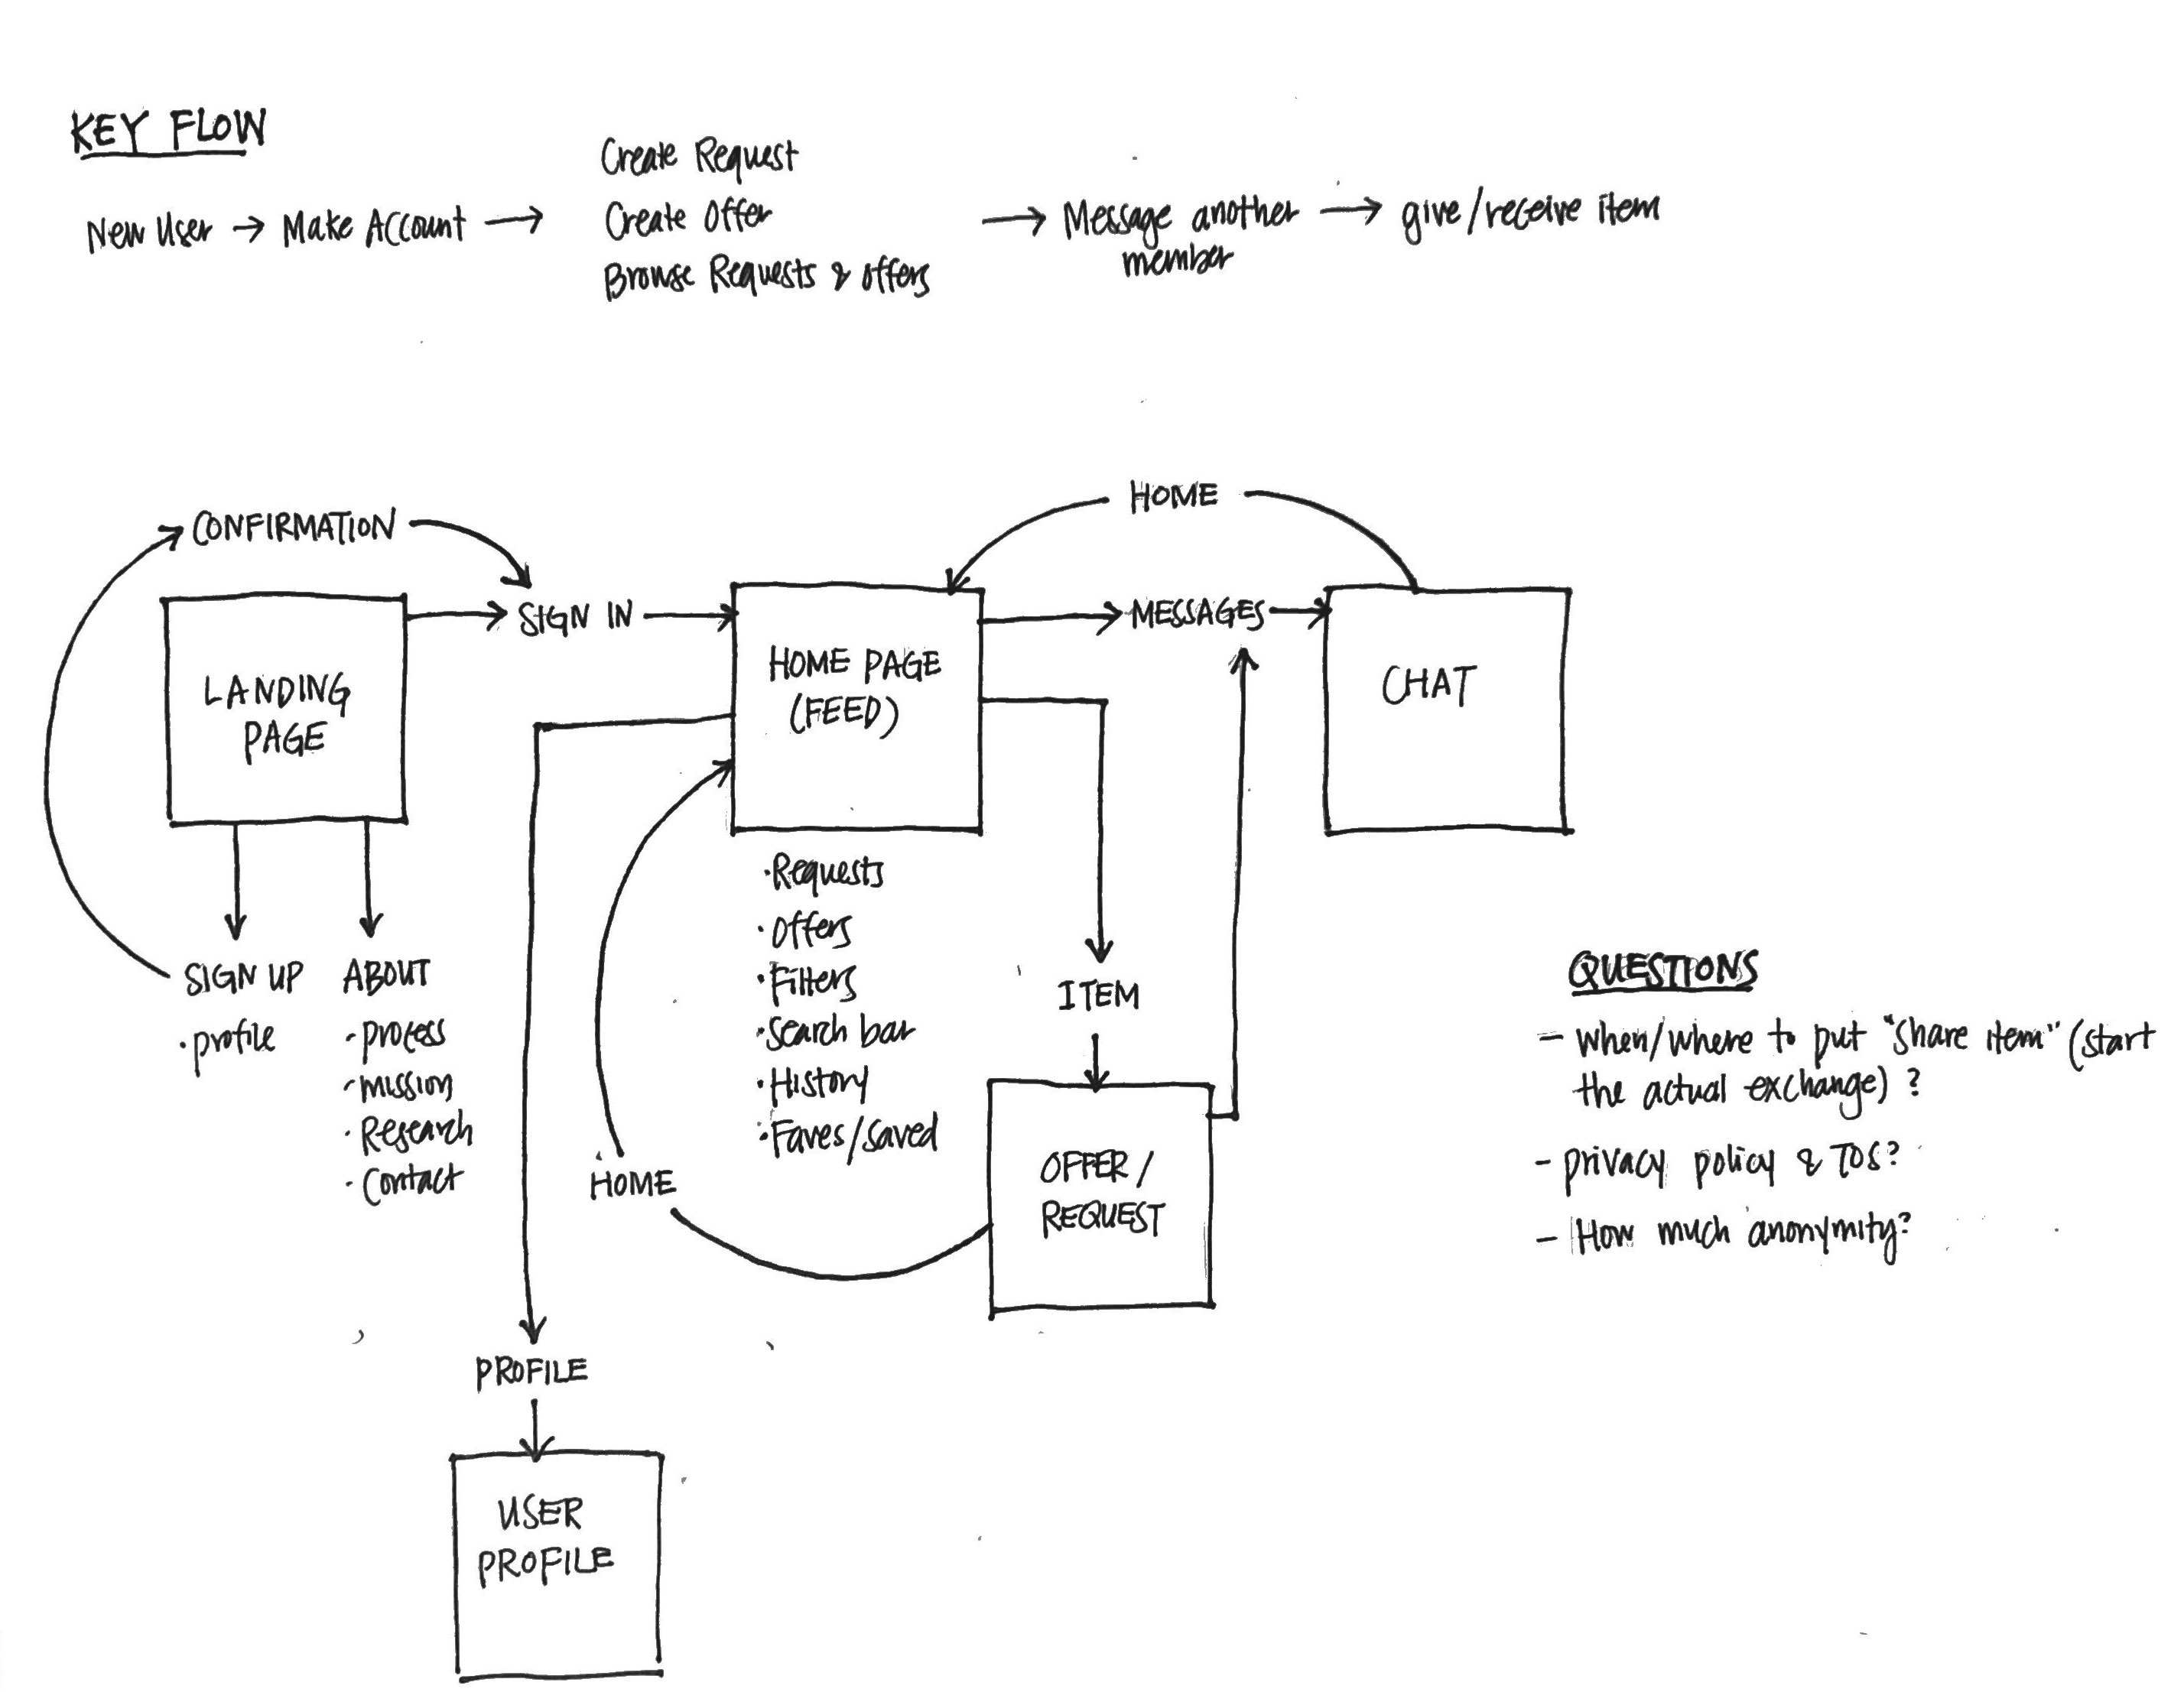 KEY FLOW
New User → Make Account →
Create Request
Create Offer
Browse Requests & Offers
→ Message another → give/receive item
member
HOME
CONFIRMATION
SIGN IN
MESSAGES
LANDING
PAGE
HOME PAGE
(FEED)
CHAT
SIGN UP
· profile
ABOUT
· process
· mission
· Research
· Contact
· Requests
· Offers
· Filters
· Search bar
· History
· Faves/saved
ITEM
OFFER/
REQUEST
HOME
PROFILE
USER
PROFILE
QUESTIONS
- When/where to put "share item" (start
the actual exchange)?
- privacy policy & TOS?
- How much anonymity?